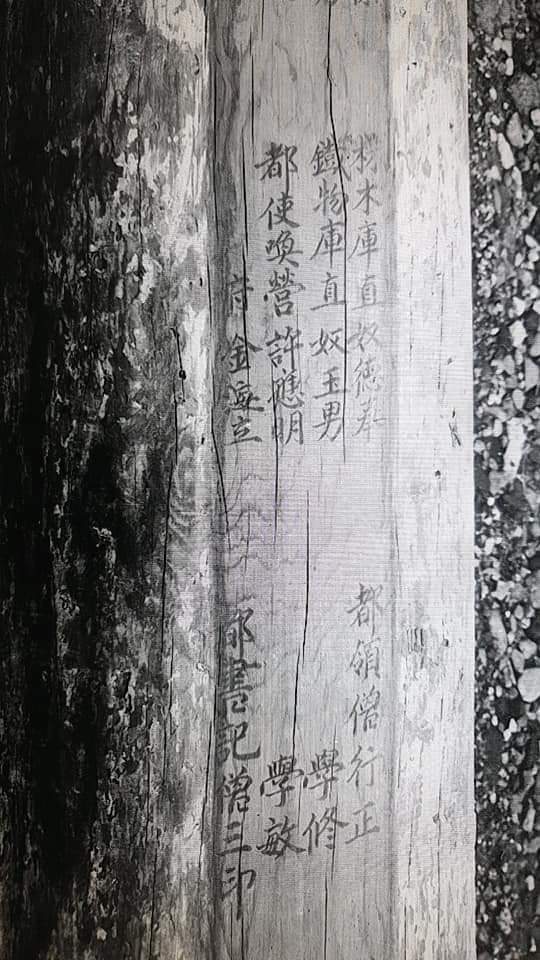 材木庫直奴德奉
鐵物庫直奴玉男
都使喚營許應明
金海立
都領僧行正
學修
學敏
都書記僧三印